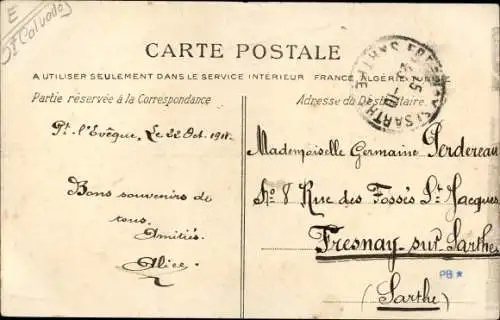 E
(Calvados)
CARTE POSTALE
A UTILISER SEULEMENT DANS LE SERVICE INTÉRIEUR FRANCE, ALGÉRIE, TUNISIE
Partie réservée à la Correspondance
Adresse du Destinataire.
Pt. l'Evêque, Le 22 Oct.
Bons souvenirs de
tous.
Amitiés.
Alice
Mademoiselle Germaine Perdereau
No 8 Rue des Fossés St Jacques
Fresnay-sur-Sarthe
(Sarthe)
PB *